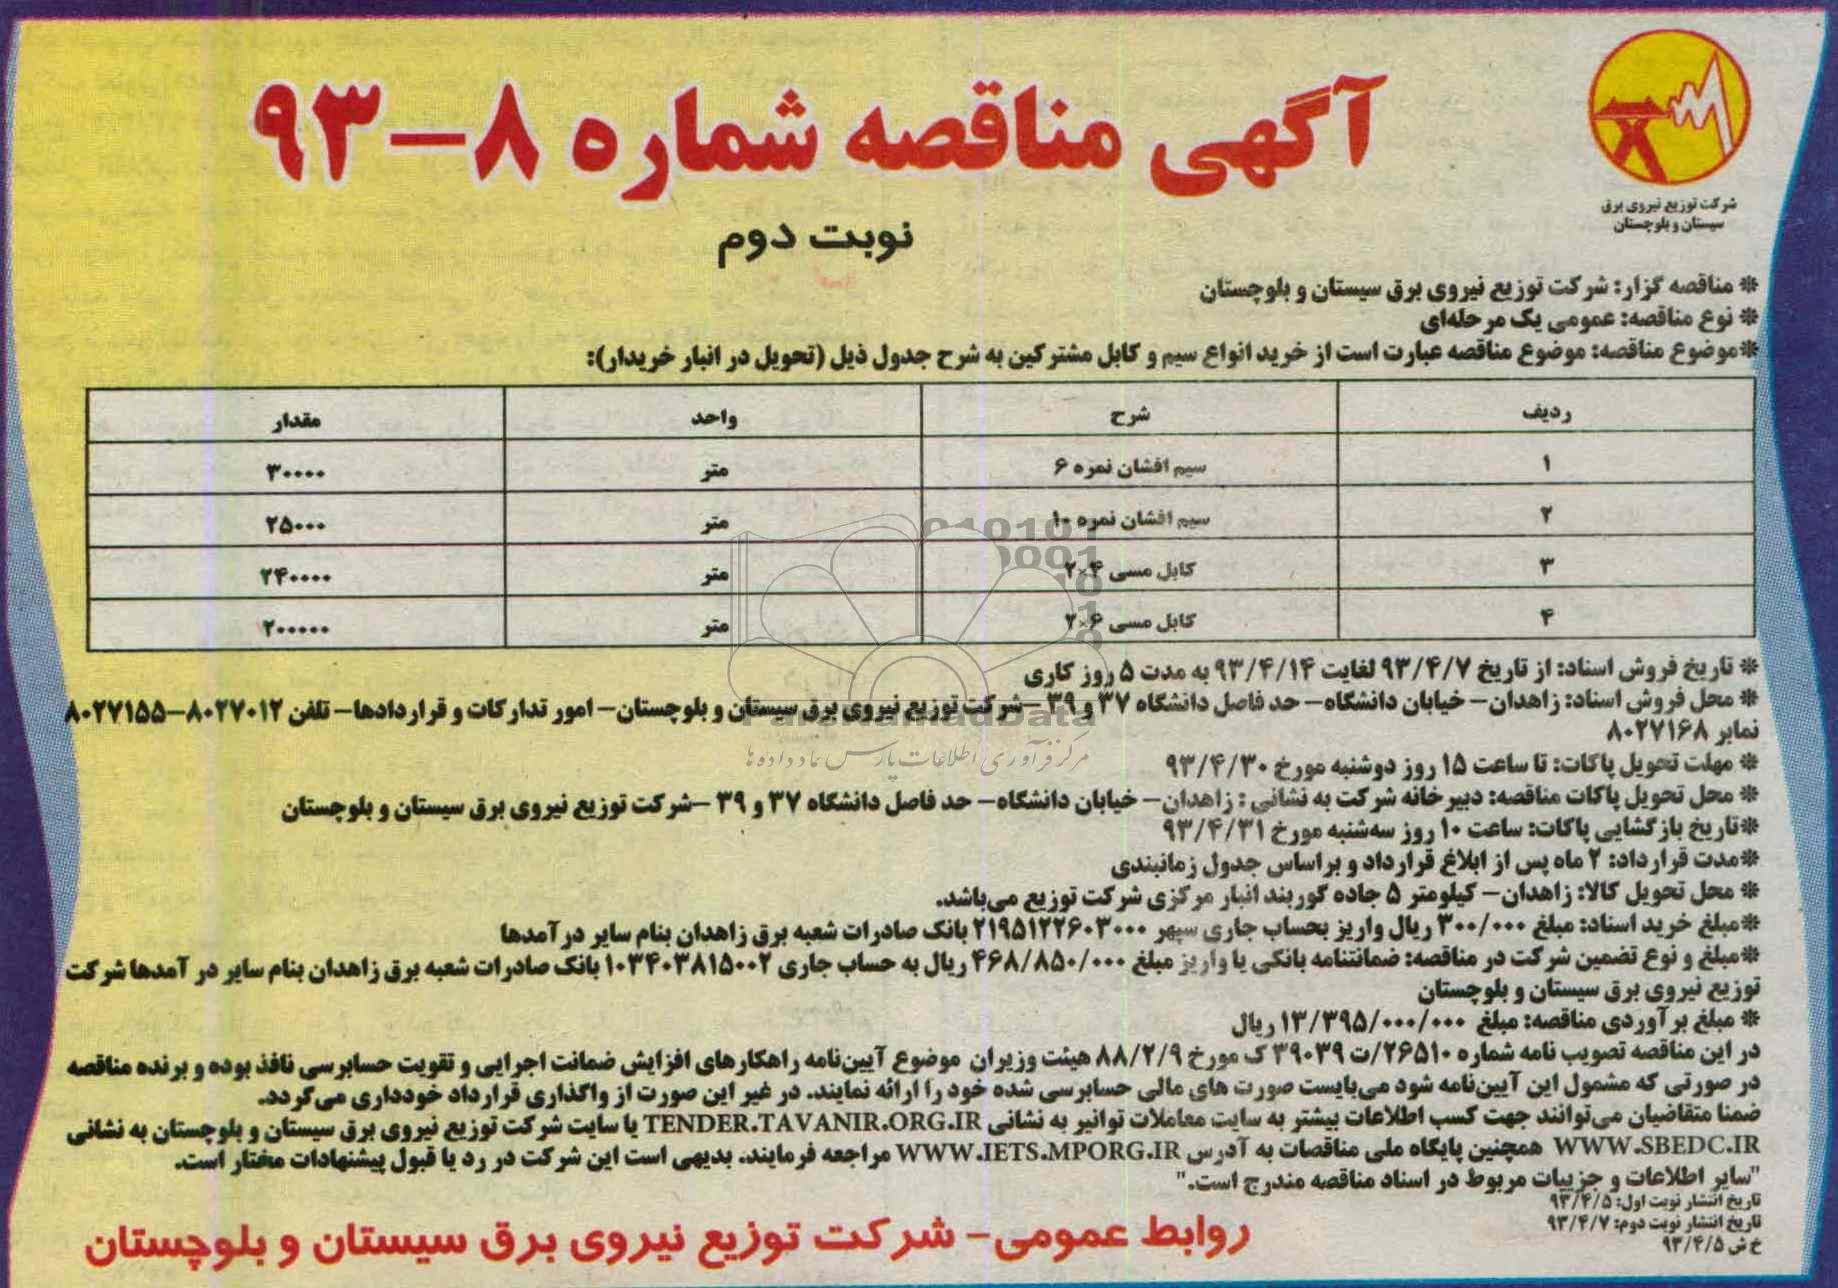 شرکت توزیع نیروی برق
سیستان و بلوچستان
آگهی مناقصه شماره ۸-۹۳
نوبت دوم
* مناقصه گزار: شرکت توزیع نیروی برق سیستان و بلوچستان
* نوع مناقصه: عمومی یک مرحله‌ای
*موضوع مناقصه: موضوع مناقصه عبارت است از خرید انواع سیم و کابل مشترکین به شرح جدول ذیل (تحویل در انبار خریدار):
ردیف شرح واحد مقدار
۱ سیم افشان نمره ۶ متر ۳۰۰۰۰
۲ سیم افشان نمره ۱۰ متر ۲۵۰۰۰
۳ کابل مسی ۴×۲ متر ۲۴۰۰۰۰
۴ کابل مسی ۶×۲ متر ۲۰۰۰۰۰
* تاریخ فروش اسناد: از تاریخ ۹۳/۴/۷ لغایت ۹۳/۴/۱۴ به مدت ۵ روز کاری
* محل فروش اسناد: زاهدان- خیابان دانشگاه- حد فاصل دانشگاه ۳۷ و ۳۹ -شرکت توزیع نیروی برق سیستان و بلوچستان- امور تدارکات و قراردادها- تلفن ۸۰۲۷۰۱۲-۸۰۲۷۱۵۵
نمابر ۸۰۲۷۱۶۸
ParsNamadData
مرکز فرآوری اطلاعات پارس نماد داده ها
* مهلت تحویل پاکات: تا ساعت ۱۵ روز دوشنبه مورخ ۹۳/۴/۳۰
* محل تحویل پاکات مناقصه: دبیرخانه شرکت به نشانی : زاهدان- خیابان دانشگاه- حد فاصل دانشگاه ۳۷ و ۳۹ -شرکت توزیع نیروی برق سیستان و بلوچستان
*تاریخ بازگشایی پاکات: ساعت ۱۰ روز سه‌شنبه مورخ ۹۳/۴/۳۱
*مدت قرارداد: ۲ ماه پس از ابلاغ قرارداد و براساس جدول زمانبندی
* محل تحویل کالا: زاهدان- کیلومتر ۵ جاده گوربند انبار مرکزی شرکت توزیع می‌باشد.
*مبلغ خرید اسناد: مبلغ ۳۰۰/۰۰۰ ریال واریز بحساب جاری سپهر ۲۱۹۵۱۲۲۶۰۳۰۰۰ بانک صادرات شعبه برق زاهدان بنام سایر درآمدها
*مبلغ و نوع تضمین شرکت در مناقصه: ضمانتنامه بانکی یا واریز مبلغ ۴۶۸/۸۵۰/۰۰۰ ریال به حساب جاری ۱۰۳۴۰۳۸۱۵۰۰۲ بانک صادرات شعبه برق زاهدان بنام سایر در آمدها شرکت
توزیع نیروی برق سیستان و بلوچستان
* مبلغ برآوردی مناقصه: مبلغ ۱۳/۳۹۵/۰۰۰/۰۰۰ ریال
در این مناقصه تصویب نامه شماره ۲۶۵۱۰/ت ۳۹۰۳۹ ک مورخ ۸۸/۲/۹ هیئت وزیران موضوع آیین‌نامه راهکارهای افزایش ضمانت اجرایی و تقویت حسابرسی نافذ بوده و برنده مناقصه
در صورتی که مشمول این آیین‌نامه شود می‌بایست صورت های مالی حسابرسی شده خود را ارائه نمایند. در غیر این صورت از واگذاری قرارداد خودداری می‌گردد.
ضمنا متقاضیان می‌توانند جهت کسب اطلاعات بیشتر به سایت معاملات توانیر به نشانی TENDER.TAVANIR.ORG.IR یا سایت شرکت توزیع نیروی برق سیستان و بلوچستان به نشانی
WWW.SBEDC.IR همچنین پایگاه ملی مناقصات به آدرس WWW.IETS.MPORG.IR مراجعه فرمایند. بدیهی است این شرکت در رد یا قبول پیشنهادات مختار است.
"سایر اطلاعات و جزییات مربوط در اسناد مناقصه مندرج است."
تاریخ انتشار نوبت اول: ۹۳/۴/۵
تاریخ انتشار نوبت دوم: ۹۳/۴/۷
خ ش ۹۳/۴/۵
روابط عمومی- شرکت توزیع نیروی برق سیستان و بلوچستان